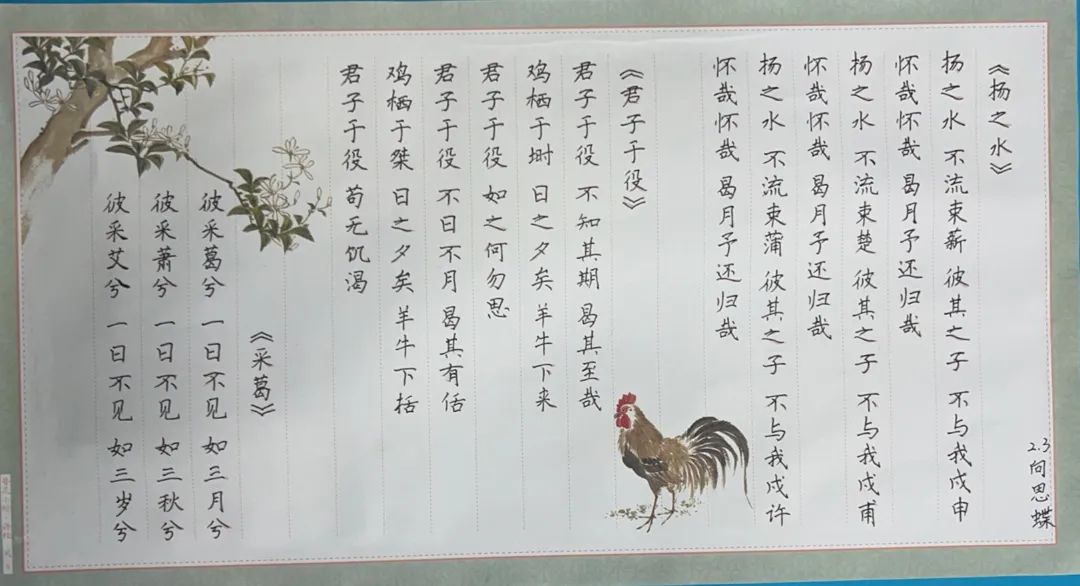 《扬之水》
扬之水 不流束薪 彼其之子 不与我戍申
怀哉怀哉 曷月予还归哉
扬之水 不流束楚 彼其之子 不与我戍甫
怀哉怀哉 曷月予还归哉
扬之水 不流束蒲 彼其之子 不与我戍许
怀哉怀哉 曷月予还归哉
《君子于役》
君子于役 不知其期 曷其至哉
鸡栖于埘 日之夕矣 羊牛下来
君子于役 如之何勿思
君子于役 不日不月 曷其有佸
鸡栖于桀 日之夕矣 羊牛下括
君子于役 苟无饥渴
《采葛》
彼采葛兮 一日不见 如三月兮
彼采萧兮 一日不见 如三秋兮
彼采艾兮 一日不见 如三岁兮
2.3向思蝶